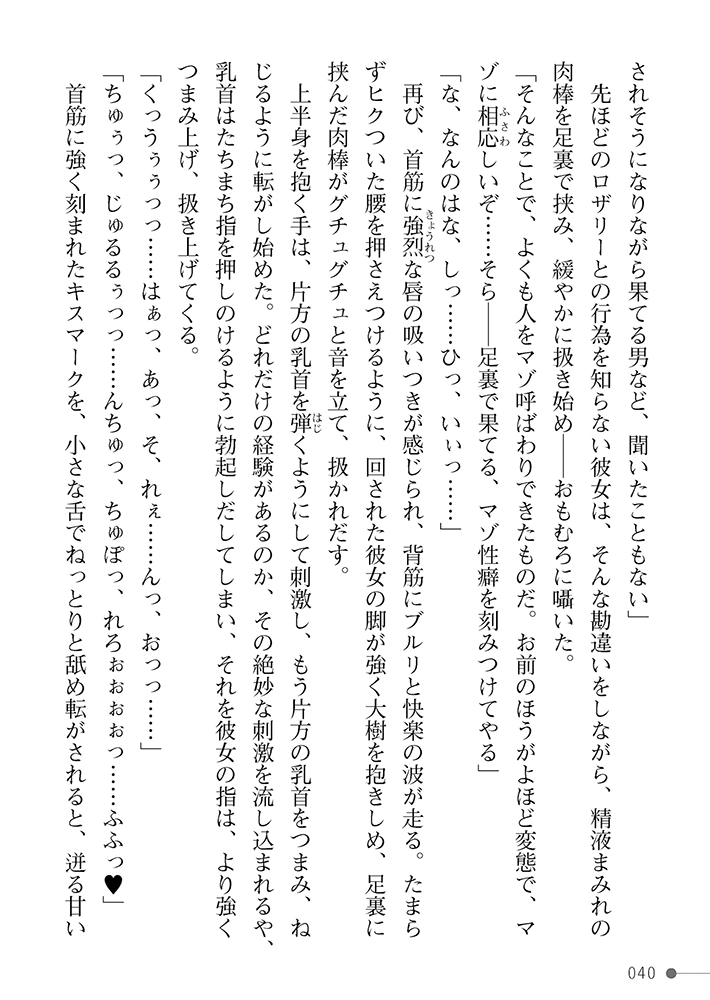 されそうになりながら果てる男など、聞いたこともない」
　先ほどのロザリーとの行為を知らない彼女は、そんな勘違いをしながら、精液まみれの
肉棒を足裏で挟み、緩やかに扱き始め――おもむろに囁いた。
「そんなことで、よくも人をマゾ呼ばわりできたものだ。お前のほうがよほど変態で、マ
ゾに相応しいぞ……そら――足裏で果てる、マゾ性癖を刻みつけてやる」
「な、なんのはな、しっ……ひっ、いぃっ……」
　再び、首筋に強烈な唇の吸いつきが感じられ、背筋にブルリと快楽の波が走る。たまら
ずヒクついた腰を押さえつけるように、回された彼女の脚が強く大樹を抱きしめ、足裏に
挟んだ肉棒がグチュグチュと音を立て、扱かれだす。
　上半身を抱く手は、片方の乳首を弾くようにして刺激し、もう片方の乳首をつまみ、ね
じるように転がし始めた。どれだけの経験があるのか、その絶妙な刺激を流し込まれるや、
乳首はたちまち指を押しのけるように勃起しだしてしまい、それを彼女の指は、より強く
つまみ上げ、扱き上げてくる。
「くっうぅぅっっ……はぁっ、あっ、そ、れぇ……んっ、おっっ……」
「ちゅぅっ、じゅるるぅっっ……んちゅっ、ちゅぽっ、れろぉぉぉぉっ……ふふっ♥」
　首筋に強く刻まれたキスマークを、小さな舌でねっとりと舐め転がされると、迸る甘い
040